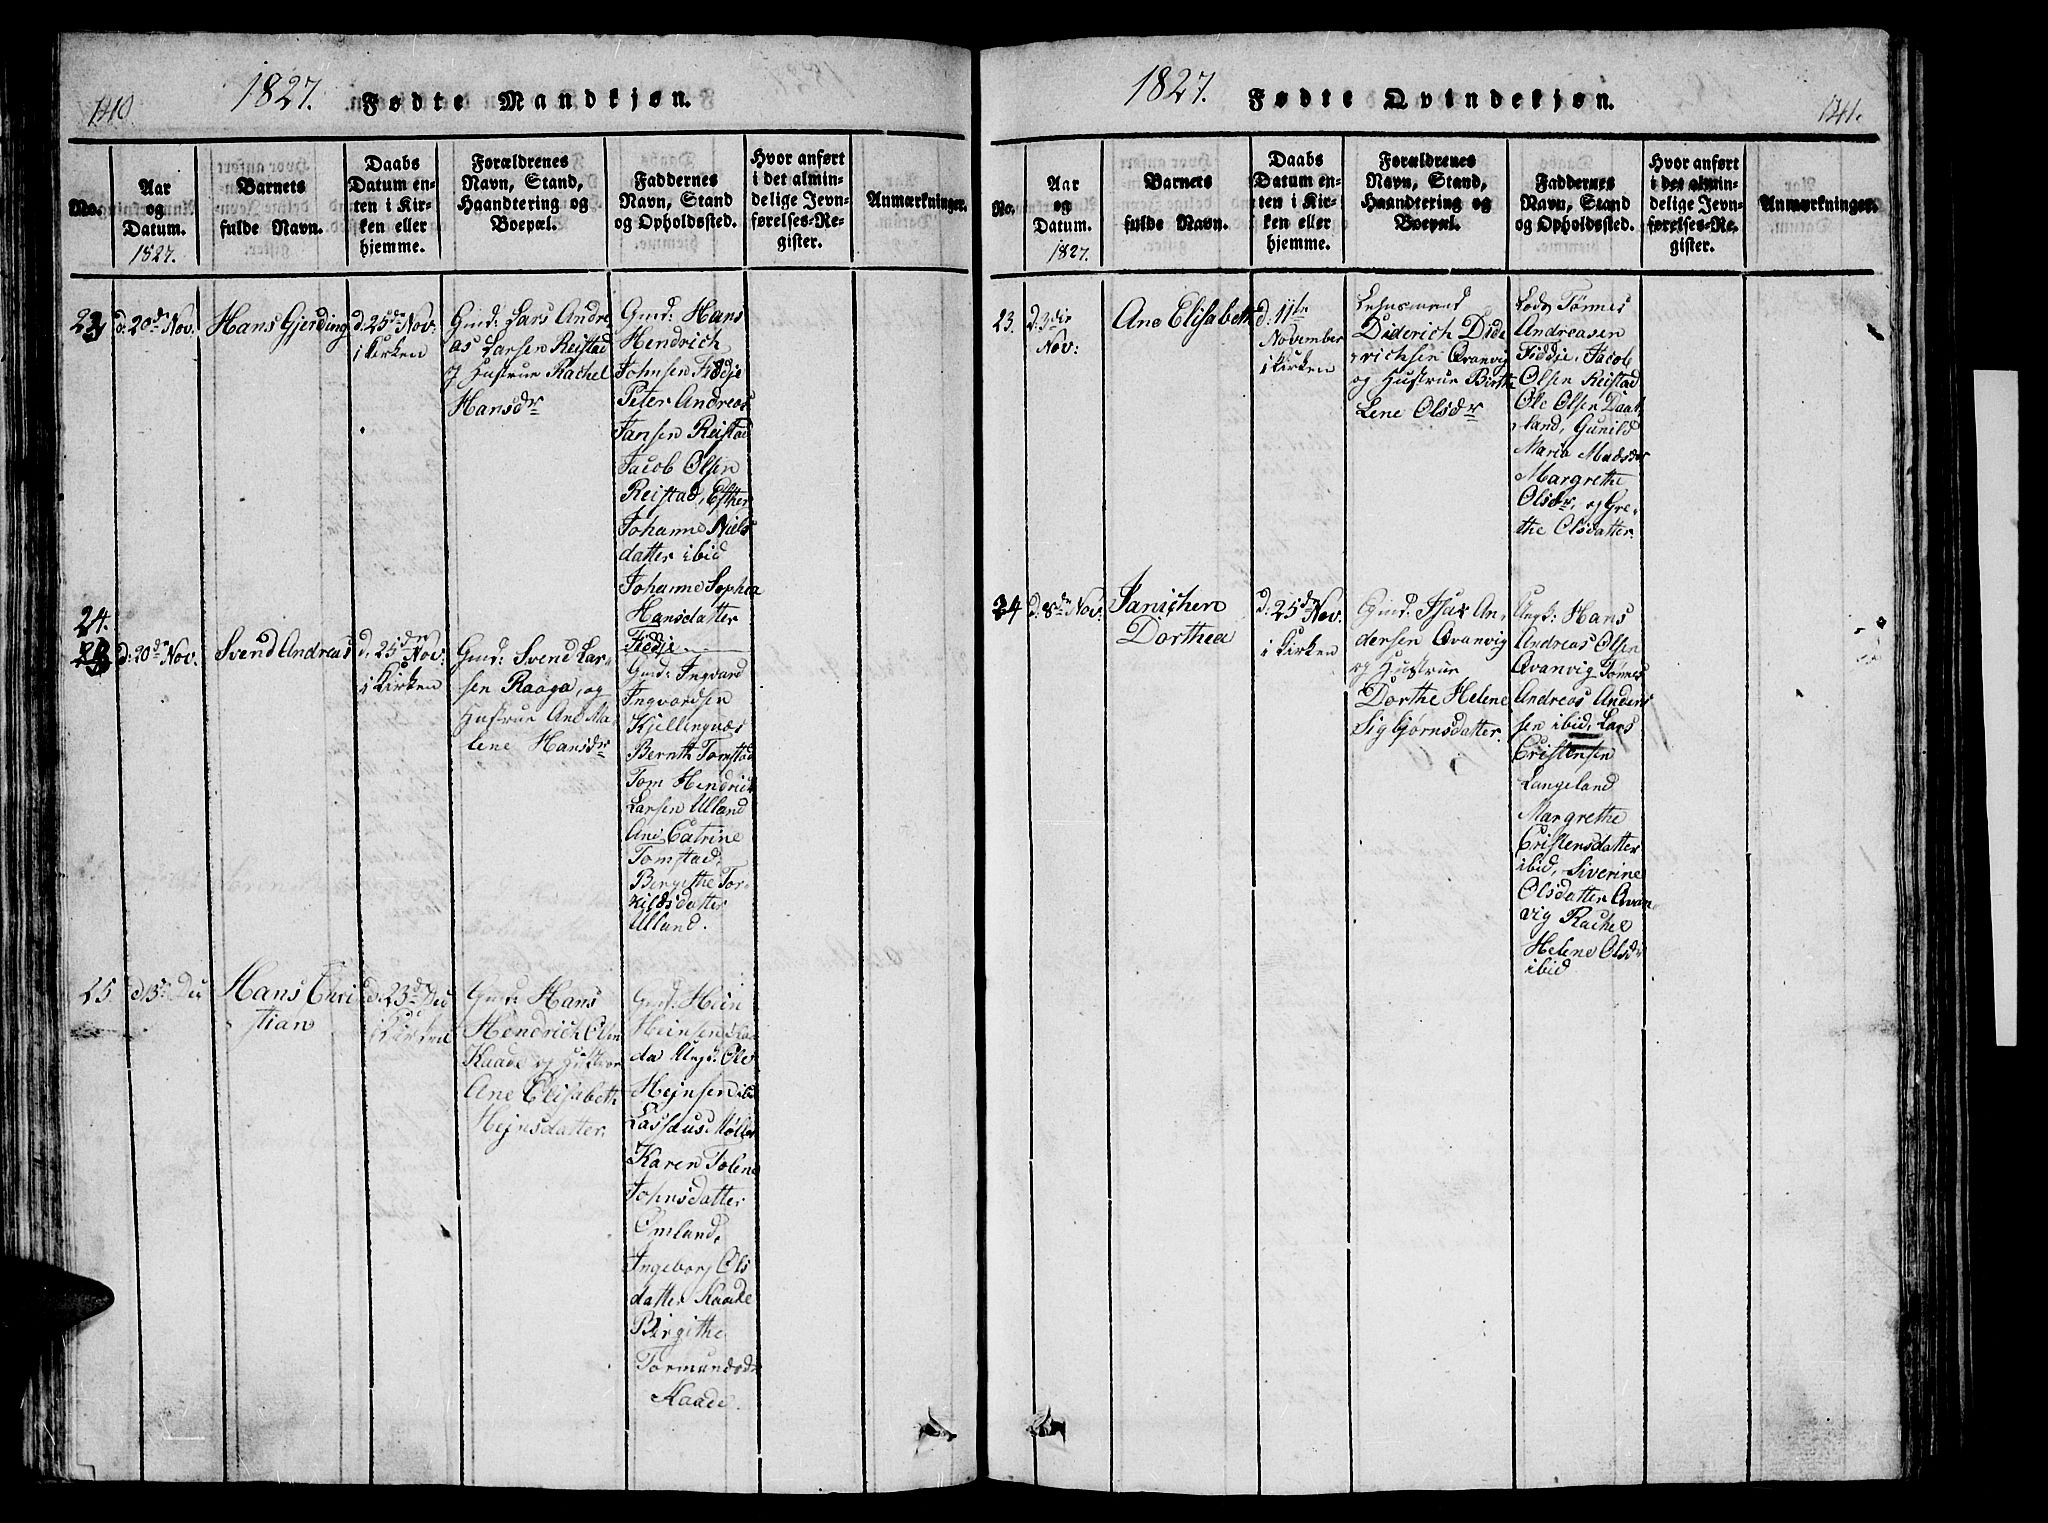 140.
1827. Fødte Mandkjøn.
No.
Aar
og
Datum.
1827.
Barnets
fulde Navn.
Daabs
Datum en-
ten i Kir-
ken eller
hjemme.
Forældrenes
Navn, Stand,
Haandtering og
Boepæl.
Faddernes
Navn, Stand
og Opholdssted.
Hvor anført
i det almin-
delige Jevn-
førelses-Re-
gister.
Anmærkninger.
23
d: 20de Nov.
Hans Gjerding
d: 25de Nov:
i Kirken
Gmd: Lars Andre
as Larsen Reistad
og Hustrue Rachel
Hansdr
Gmd: Hans
Hendrich
Johnsen Fidje
Peter Andreas
Jansen Reistad
Jacob Olsen
Reistad, Esther
Johanne Niels
datter ibid
Johanne Sophia
Hansdatter
Fidje
24.
d: 20de Nov.
Svend Andreas
d, 25de Nov:
i Kirken
Gmd: Svend Lar-
sen Raaga, og
Hustrue Ane Ma-
lene Hansdr
Gmd: Ingvard
Ingvordsen
Kjellingnæs
Bernth Tomstad
Tom Hendrik
Larsen Ulland
Ane Catrine
Tomstad,
Bergithe Tor-
kildsdatter
Ulland.
25
Hans Chri
stian
d. 23de Dec
i Kirken
Gmd: Hans
Hendrich Olsen
Kaade og Hustrue
Ane Elisabeth
Hejnsdatter.
Gmd: Hein
Heinsen
Ungd: Ole
Heinsen ibid
Lassæus Møller
Karen Tolene
Johnsdatter
Omland,
Ingeborg Ols
datter Kaade
Birgithe
Tormundsdr
Kaade.
1827. Fødte Qvindekjøn.
141.
No.
Aar
og
Datum.
1827.
Barnets
fulde Navn.
Daabs
Datum en-
ten i Kir-
ken eller
hjemme.
Forældrenes
Navn, Stand,
Haandtering og
Boepæl.
Faddernes
Navn, Stand
og Opholdssted.
Hvor anført
i det almin-
delige Jevn-
førelses-Re-
gister.
Anmærkninger.
23.
d: 3die
Nov:
Ane Elisabeth
d: 11te
November
i Kirken
Lehnsmand
Diderich Dide
richsen Qvanvig
og Hustrue Birthe
Lene Olsdr
Lods Tønnes
Andreasen
Fiddje, Jacob
Olsen Reistad
Ole Olsen Daat
land, Gunild
Maria Madsdr
Margrethe
Olsdr, og Gre-
the Olsdatter.
24
d: 8de Nov:
Janichen
Dorthea
d: 25de Nov:
i Kirken
Gmd: Isax An
dersen Qvanvig
og Hustrue
Dorthe Helene
Sigbjørnsdatter.
Ungk: Hans
Andreas Olsen
Qvanvig Tønnes
Andreas Anders
sen ibid, Lars
Cristensen
Langeland
Margrethe
Cristensdatter
ibid, Siverine
Olsdatter Qvan
vig Rachel
Helene Olsdr
ibid